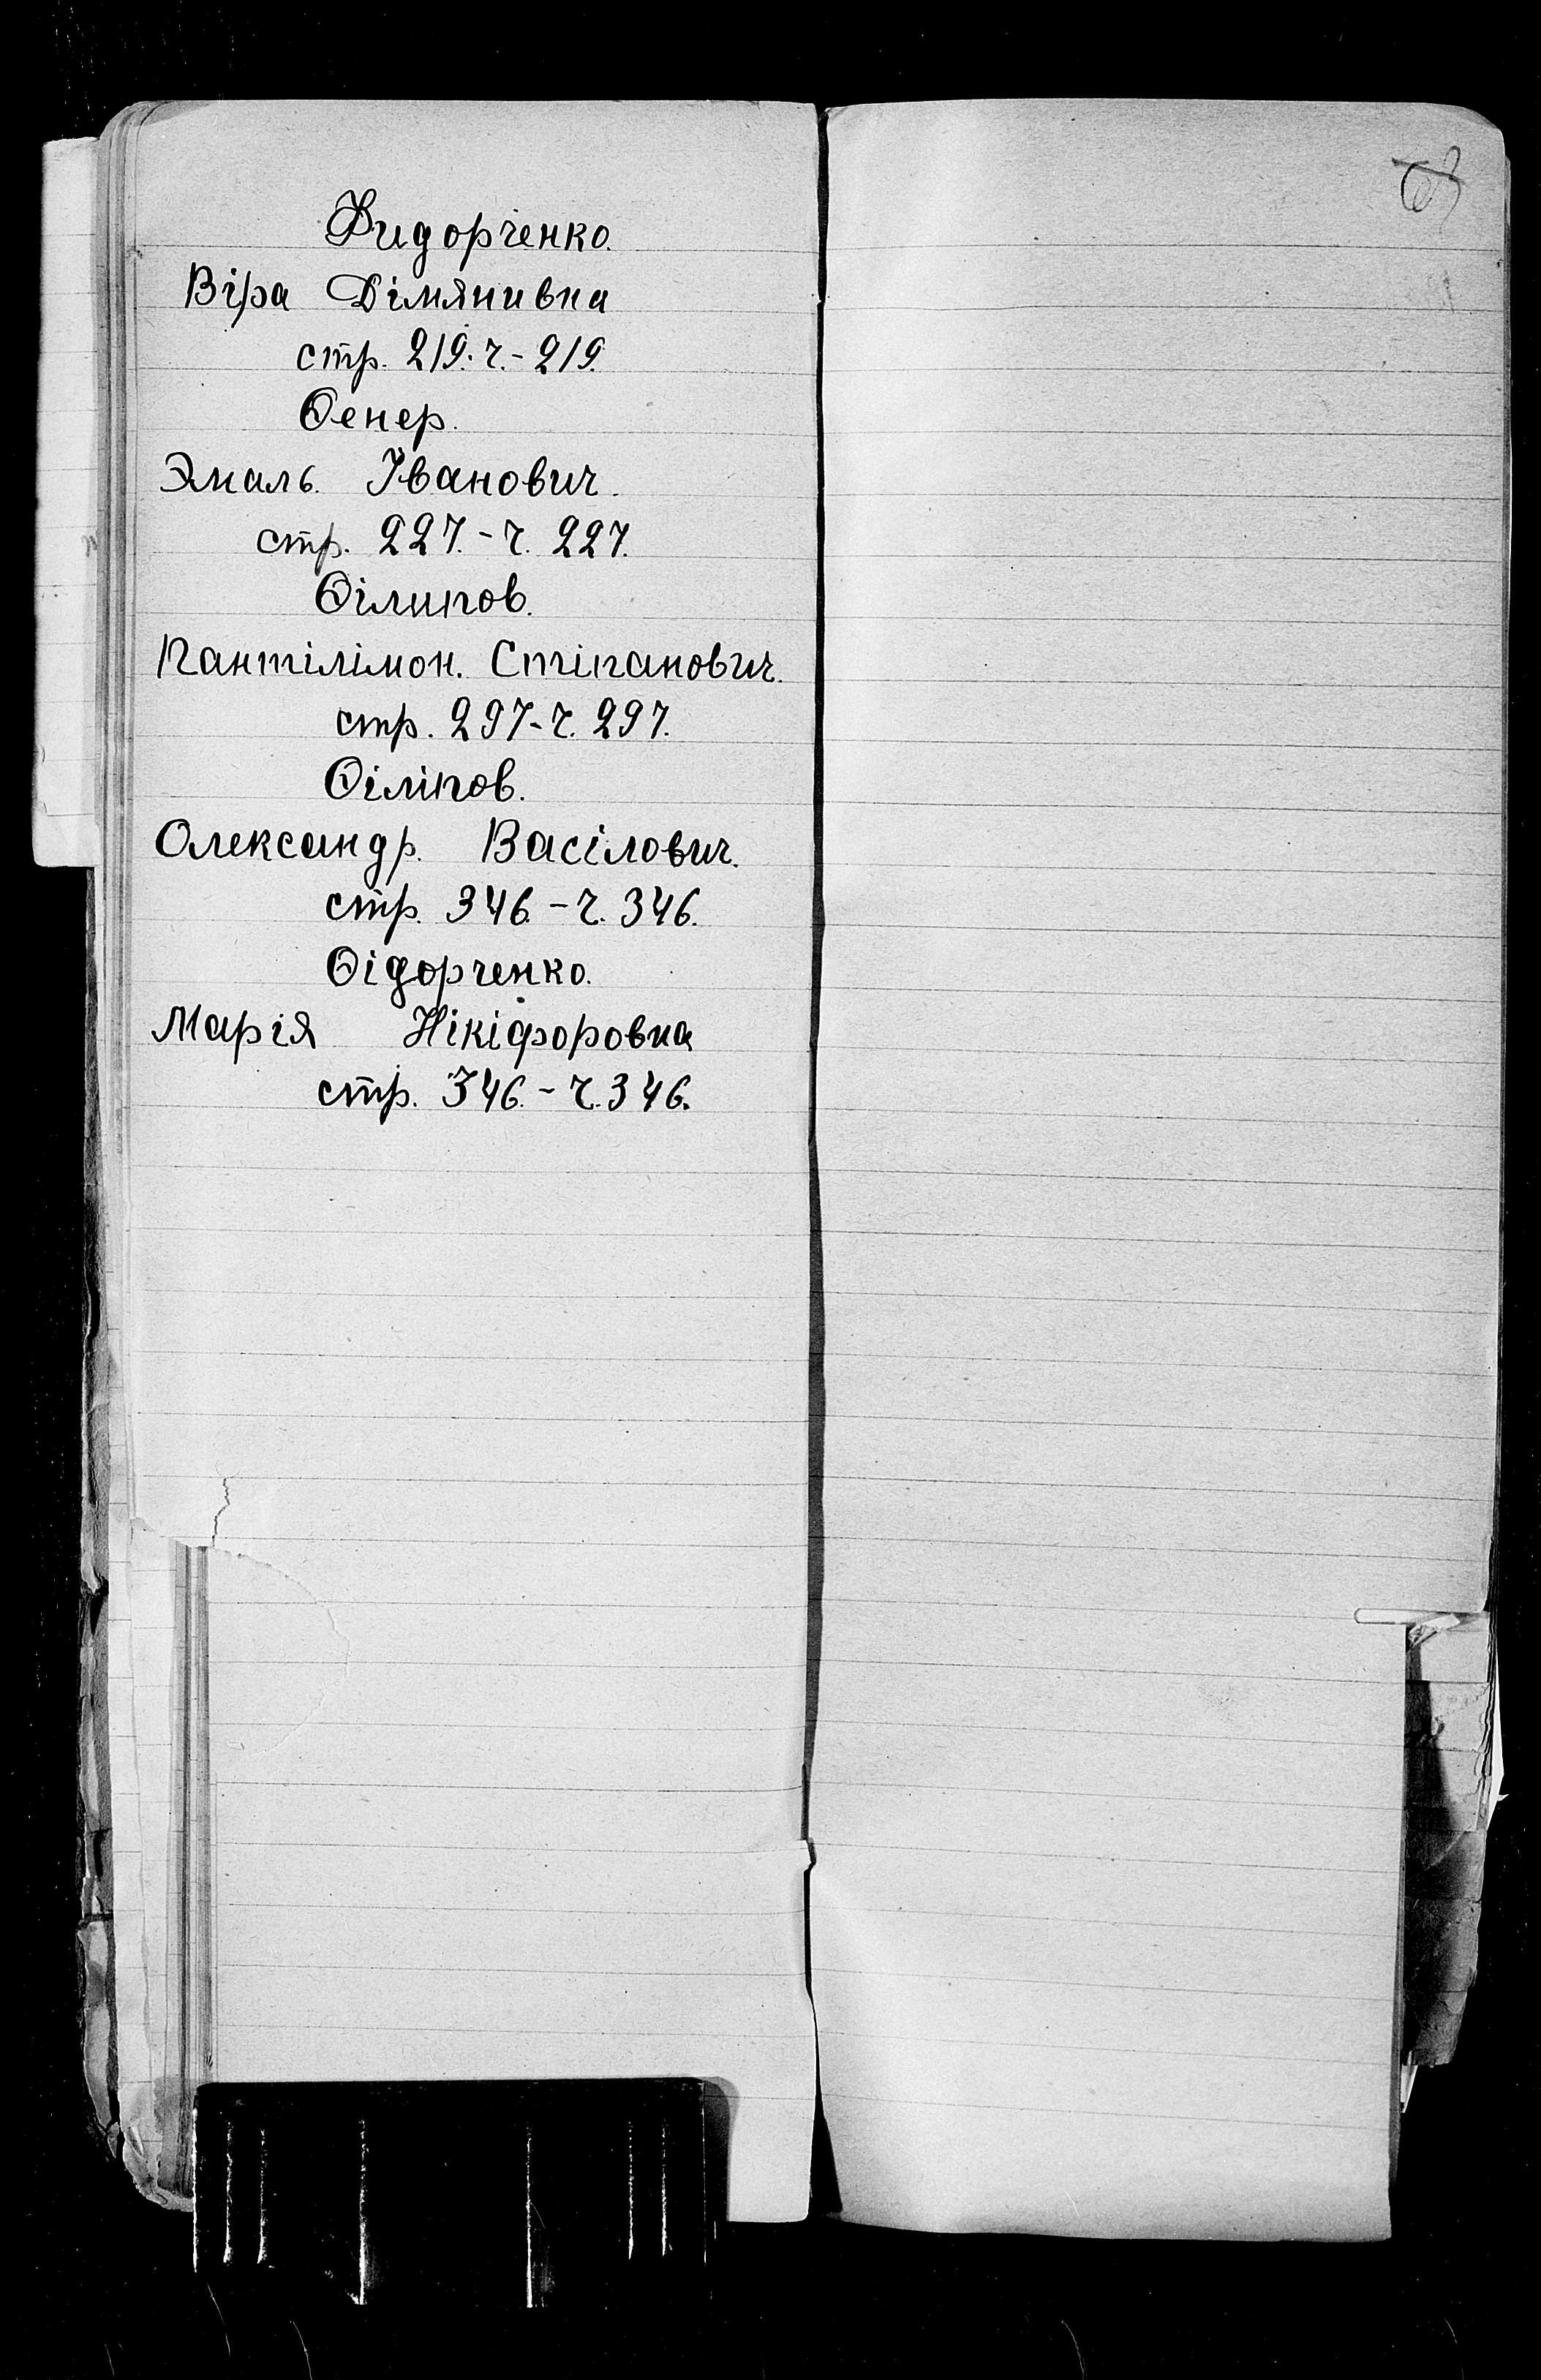 Фидорченко.
Віра Дімянивна
стр. 219. ч. - 219.
Ѳенер.
Эмаль. Іванович.
стр. 227. - ч. 227.
Ѳілипов.
Пантілімон. Стіпанович.
стр. 297 - ч. 297.
Ѳіліпов.
Олександр. Васілович.
стр. 346. - ч. 346.
Ѳідорченко.
Марія Нікіфоровна
стр. 346. - ч. 346.